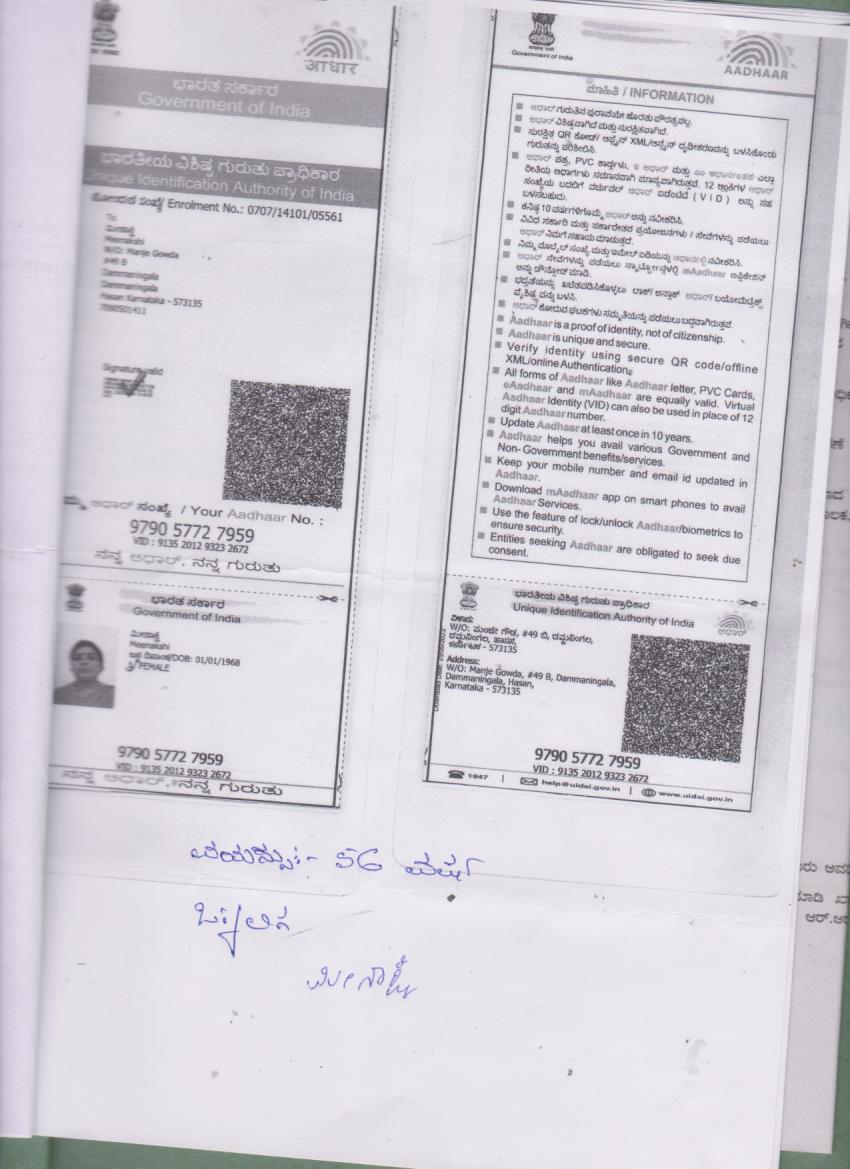 आधार
ಭಾರತ ಸರ್ಕಾರ
Government of India
ಭಾರತೀಯ ವಿಶಿಷ್ಟ ಗುರುತು ಪ್ರಾಧಿಕಾರ
Unique Identification Authority of India
ನೋಂದಣಿ ಸಂಖ್ಯೆ/ Enrolment No.: 0707/14101/05561
To
ಮೀನಾಕ್ಷಿ
Meenakshi
W/O: Manje Gowda
#49 B
Dammaningala
Dammaningala
Hasan Karnataka - 573135
Signature valid
ಆಧಾರ್ ಸಂಖ್ಯೆ / Your Aadhaar No. :
9790 5772 7959
VID : 9135 2012 9323 2672
ನನ್ನ ಆಧಾರ್, ನನ್ನ ಗುರುತು
ಭಾರತ ಸರ್ಕಾರ
Government of India
ಮೀನಾಕ್ಷಿ
Meenakshi
ಜನ್ಮ ದಿನಾಂಕ/DOB: 01/01/1968
FEMALE
9790 5772 7959
VID : 9135 2012 9323 2672
ನನ್ನ ಆಧಾರ್, ನನ್ನ ಗುರುತು
Government of India
AADHAAR
ಮಾಹಿತಿ / INFORMATION
ಆಧಾರ್ ಗುರುತಿನ ಪುರಾವೆಯೇ ಹೊರತು ಪೌರತ್ವವಲ್ಲ.
ಆಧಾರ್ ವಿಶಿಷ್ಟವಾಗಿದೆ ಮತ್ತು ಸುರಕ್ಷಿತವಾಗಿದೆ.
ಸುರಕ್ಷಿತ QR ಕೋಡ್/ ಆಫ್ಲೈನ್ XML/ಆನ್ಲೈನ್ ದೃಢೀಕರಣವನ್ನು ಬಳಸಿಕೊಂಡು
ಗುರುತನ್ನು ಪರಿಶೀಲಿಸಿ.
ಆಧಾರ್ ಪತ್ರ, PVC ಕಾರ್ಡ್ಗಳು, ಇ ಆಧಾರ್ ಮತ್ತು ಎಲ್ಲಾ
ರೀತಿಯ ಆಧಾರ್ಗಳು ಸಮಾನವಾಗಿ ಮಾನ್ಯವಾಗಿರುತ್ತವೆ. 12 ಅಂಕಿಗಳ ಆಧಾರ್
ಸಂಖ್ಯೆಯ ಬದಲಿಗೆ ವರ್ಚುವಲ್ ಆಧಾರ್ ಐಡೆಂಟಿಟಿ (VID) ಅನ್ನು ಸಹ
ಬಳಸಬಹುದು.
ಕನಿಷ್ಠ 10 ವರ್ಷಗಳಿಗೊಮ್ಮೆ ಆಧಾರ್ ಅನ್ನು ನವೀಕರಿಸಿ.
ವಿವಿಧ ಸರ್ಕಾರಿ ಮತ್ತು ಸರ್ಕಾರೇತರ ಪ್ರಯೋಜನಗಳು / ಸೇವೆಗಳನ್ನು ಪಡೆಯಲು
ಆಧಾರ್ ನಿಮಗೆ ಸಹಾಯ ಮಾಡುತ್ತದೆ.
ನಿಮ್ಮ ಮೊಬೈಲ್ ಸಂಖ್ಯೆ ಮತ್ತು ಇಮೇಲ್ ಐಡಿಯನ್ನು ಆಧಾರ್ನಲ್ಲಿ ನವೀಕರಿಸಿ.
ಆಧಾರ್ ಸೇವೆಗಳನ್ನು ಪಡೆಯಲು ಸ್ಮಾರ್ಟ್ಫೋನ್ಗಳಲ್ಲಿ mAadhaar ಅಪ್ಲಿಕೇಶನ್
ಅನ್ನು ಡೌನ್ಲೋಡ್ ಮಾಡಿ.
ಭದ್ರತೆಯನ್ನು ಖಚಿತಪಡಿಸಿಕೊಳ್ಳಲು ಲಾಕ್/ ಅನ್ಲಾಕ್ ಆಧಾರ್/ ಬಯೋಮೆಟ್ರಿಕ್ಸ್
ವೈಶಿಷ್ಟ್ಯವನ್ನು ಬಳಸಿ.
ಆಧಾರ್ ಕೋರುವ ಘಟಕಗಳು ಸಮ್ಮತಿಯನ್ನು ಪಡೆಯಲು ಬದ್ಧವಾಗಿರುತ್ತವೆ.
Aadhaar is a proof of identity, not of citizenship.
Aadhaar is unique and secure.
Verify identity using secure QR code/offline
XML/online Authentication.
All forms of Aadhaar like Aadhaar letter, PVC Cards,
eAadhaar and mAadhaar are equally valid. Virtual
Aadhaar Identity (VID) can also be used in place of 12
digit Aadhaar number.
Update Aadhaar at least once in 10 years.
Aadhaar helps you avail various Government and
Non- Government benefits/services.
Keep your mobile number and email id updated in
Aadhaar.
Download mAadhaar app on smart phones to avail
Aadhaar Services.
Use the feature of lock/unlock Aadhaar/biometrics to
ensure security.
Entities seeking Aadhaar are obligated to seek due
consent.
ಭಾರತೀಯ ವಿಶಿಷ್ಟ ಗುರುತು ಪ್ರಾಧಿಕಾರ
Unique Identification Authority of India
ಆಧಾರ್
ವಿಳಾಸ:
W/O: ಮಂಜೇ ಗೌಡ, #49 ಬಿ, ದಮ್ಮನಿಂಗಲ,
ದಮ್ಮನಿಂಗಲ, ಹಾಸನ,
ಕರ್ನಾಟಕ - 573135
Address:
W/O: Manje Gowda, #49 B, Dammaningala,
Dammaningala, Hasan,
Karnataka - 573135
9790 5772 7959
VID : 9135 2012 9323 2672
1947 | help@uidai.gov.in | www.uidai.gov.in
ವಯಸ್ಸು:- 56 ವರ್ಷ
ಮೀನಾಕ್ಷಿ